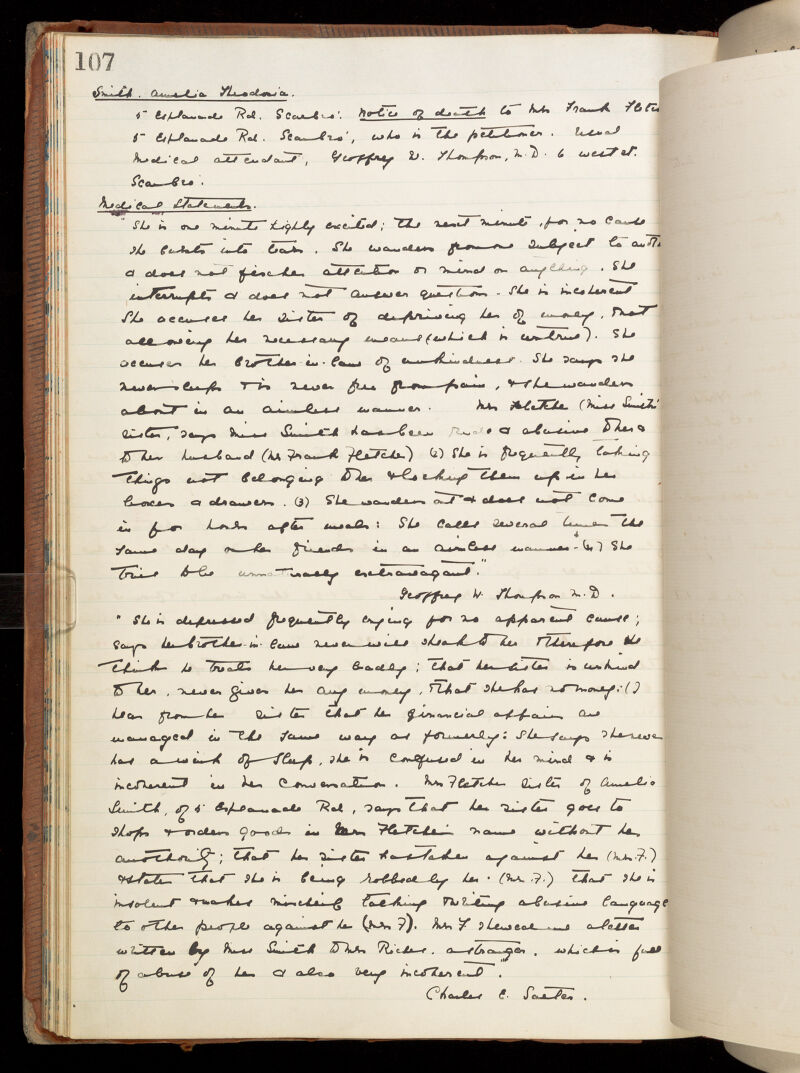 107
Smith. Amelia Theodosia.
5 Esplanade Rd. Scarbro'. Notice of death to Mrs Frank Fletc
5 Esplanade Rd. Scarbro', who is the petitioner. Usual
Medical attendant, Geoffrey W. Thompson, M.D. 6 West St.
Scarbro'.
Medical Statements.
"She is one minute highly excited; the next minute, for no cause
she bursts into tears. She wanders from one subject to anoth
& does not fix her attention or mind on anything. She
interrupts & does not answer questions. She is incoherent
She accuses her sister of depriving her of money, & not
allowing her necessary means (which is untrue). She
accuses her brother-in-law of unkindness. She says she
never sleeps & is never free from pain, & she wanders
about in an aimless manner. Mrs Fletcher (Miss Smith's
sister, says Miss Smith has been rude & abusive to her &
to her husband (Mr Frank Fletcher) (2) She is frequently taking
things not belonging to her & locking them up in her
boxes & drawers. (3) She wanders out & does not come
in for hours after meals: She calls several times the
same day on her friends in an aimless manner. (4) She
tries to be unnaturally extravagant."
Geoffrey W. Thompson M.D.
"She is depressed frequently crying for no apparent cause;
says her brother-in-law never will speak to her & therefore she
thinks he treats her very badly; that her sister is unkind
to her, never gives her any money, & that she has no money: (I
hear from her sister that her financial affairs are
managed in the same way as formerly: She says she never
has a wink of sleep, she is confused in her mind & is
incoherent in her conversation. Mrs Fletcher sister of Amelia
Smith, of 5 Esplanade Rd, says that her sister goes to
shops & orders goods in Mrs Fletcher's name without her
authority; that her sister has taken against her (Mrs F.)
& states that she is being robbed by her. (Mr. F.) that she is
insolent & makes mischief talking & writing abusive language
to other people against her (Mrs F). Mrs F shewed me a letter
written by Miss Smith to Mrs a stranger. which is full
of abuse of her & also very incoherent".
Charles C. Salter.